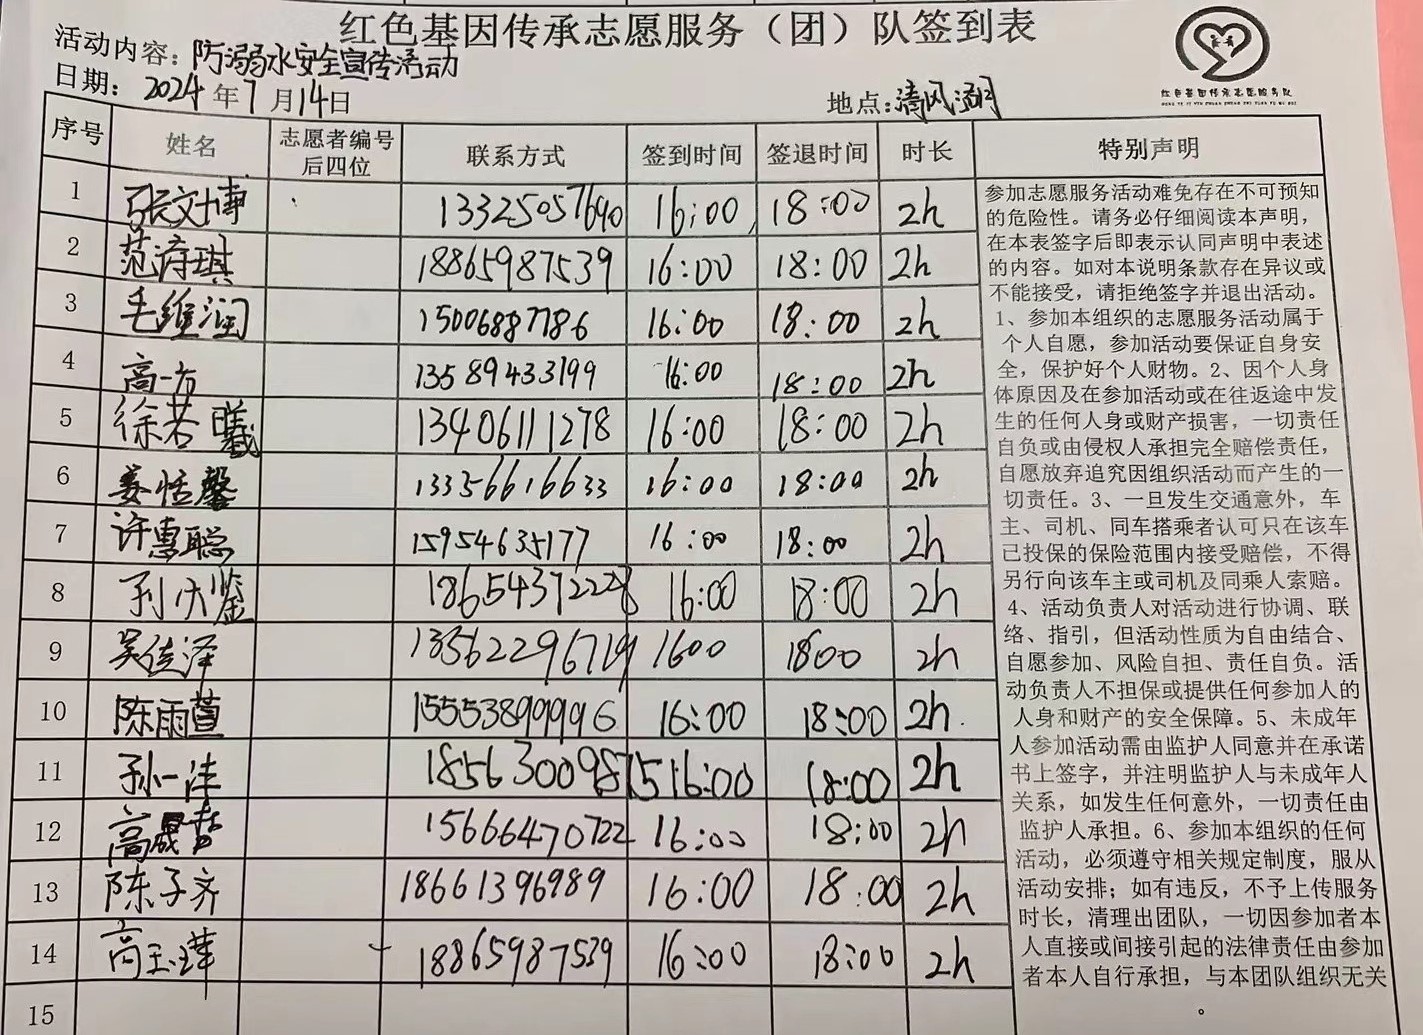 红色基因传承志愿服务（团）队签到表
活动内容：防溺水安全宣传活动
日期：2024年7月14日
地点：清风湖
红色基因传承志愿服务队
序号 姓名 志愿者编号后四位 联系方式 签到时间 签退时间 时长 特别声明
1 张文博 13325057690 16:00 18:00 2h
2 范府琪 18865987539 16:00 18:00 2h
3 毛维润 15006887786 16:00 18:00 2h
4 高一方 13589433199 16:00 18:00 2h
5 徐若曦 13406111278 16:00 18:00 2h
6 姜恬馨 13356616633 16:00 18:00 2h
7 许惠聪 15954635177 16:00 18:00 2h
8 18654372228 16:00 18:00 2h
9 吴佳泽 13562296719 1600 1800 2h
10 陈雨萱 15553899996 16:00 18:00 2h.
11 孙一沣 18563009875 16:00 18:00 2h
12 高晟哲 15666470722 16:00 18:00 2h
13 陈子齐 18661396989 16:00 18:00 2h
14 高玉瑾 18865987539 16:00 18:00 2h
15
参加志愿服务活动难免存在不可预知
的危险性。请务必仔细阅读本声明，
在本表签字后即表示认同声明中表述
的内容。如对本说明条款存在异议或
不能接受，请拒绝签字并退出活动。
1、参加本组织的志愿服务活动属于
个人自愿，参加活动要保证自身安
全，保护好个人财物。2、因个人身
体原因及在参加活动或在往返途中发
生的任何人身或财产损害，一切责任
自负或由侵权人承担完全赔偿责任，
自愿放弃追究因组织活动而产生的一
切责任。3、一旦发生交通意外，车
主、司机、同车搭乘者认可只在该车
已投保的保险范围内接受赔偿，不得
另行向该车主或司机及同乘人索赔。
4、活动负责人对活动进行协调、联
络、指引，但活动性质为自由结合、
自愿参加、风险自担、责任自负。活
动负责人不担保或提供任何参加人的
人身和财产的安全保障。5、未成年
人参加活动需由监护人同意并在承诺
书上签字，并注明监护人与未成年人
关系，如发生任何意外，一切责任由
监护人承担。6、参加本组织的任何
活动，必须遵守相关规定制度，服从
活动安排；如有违反，不予上传服务
时长，清理出团队，一切因参加者本
人直接或间接引起的法律责任由参加
者本人自行承担，与本团队组织无关
。